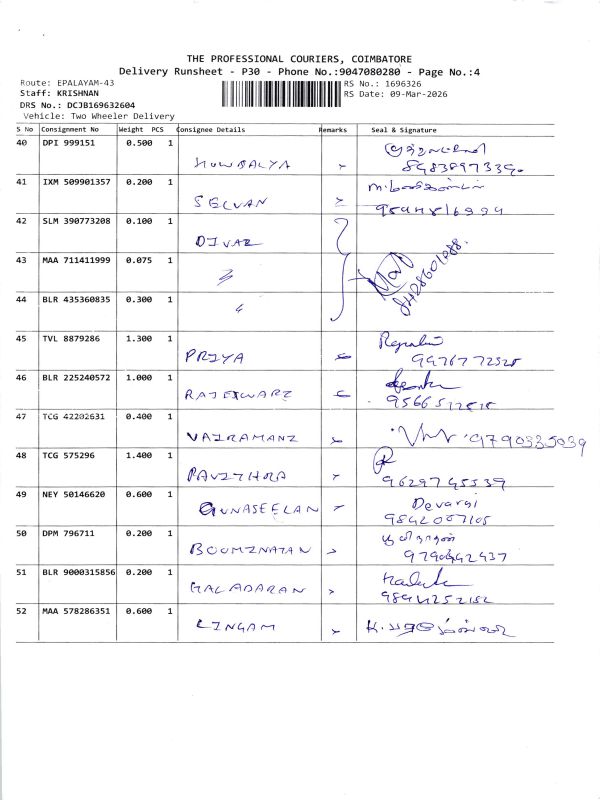 THE PROFESSIONAL COURIERS, COIMBATORE
Delivery Runsheet - P30 - Phone No.:9047080280 - Page No.:4
Route: EPALAYAM-43
RS No.: 1696326
Staff: KRISHNAN
RS Date: 09-Mar-2026
DRS No.: DCJB169632604
Vehicle: Two Wheeler Delivery
S No Consignment No Weight PCS Consignee Details Remarks Seal & Signature
40 DPI 999151 0.500 1
41 IXM 509901357 0.200 1
SELVAN
42 SLM 390773208 0.100 1
DIVAZ
43 MAA 711411999 0.075 1
8428601088
44 BLR 435360835 0.300 1
45 TVL 8879286 1.300 1
PRIYA
46 BLR 225240572 1.000 1
47 TCG 42202631 0.400 1
VAIRAMANI 9790335039
48 TCG 575296 1.400 1
PAVITHRA 9629745539
49 NEY 50146620 0.600 1
GUNASEELAN Devaraj
50 DPM 796711 0.200 1
BOOMINATAN
51 BLR 9000315856 0.200 1
GALADARAN
52 MAA 578286351 0.600 1
LINGAM